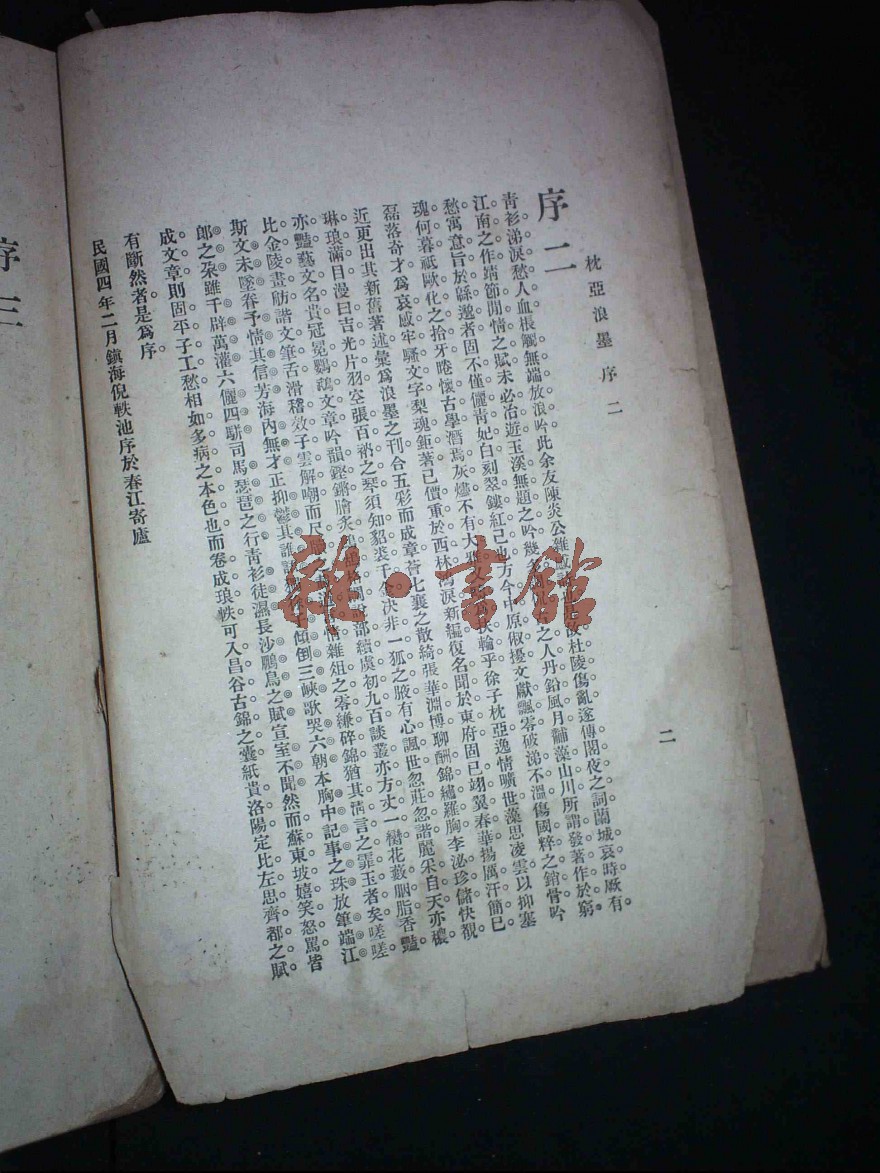 枕亞浪墨 序二
二
序二
青衫涕淚愁人血恨觸無端放浪吟此余友陳炎公雜 杜陵傷亂遂傳閣夜之詞蘭城哀時厥有
江南之作靖節閒情之賦未必冶遊玉溪無題之吟幾多 之人丹鉛風月黼藻山川所謂發著作於窮
愁寓意旨於緜邈者固不僅儷青妃白刻翠鏤紅已也方今中原俶擾文獻飄零破涕不溫傷國粹之銷骨吟
魂何暮祇歐化之拾牙睠懷古學潛焉灰燼不有大雅 扶輪乎徐子枕亞逸情曠世藻思凌雲以抑塞
磊落奇才爲哀感牢騷文字梨魂鉅著已價重於西林 淚新編復名聞於東府固已翊翼春華揚厲汗簡已
近更出其新舊著述彙爲浪墨之刊合五彩而成章薈七襄之散綺張華淵博聊酬錦繡羅胸李泌珍儲快覩
琳琅滿目漫曰吉光片羽空張百衲之琴須知貂裘千金決非一狐之腋有心諷世忽莊忽諧麗采自天亦穠
亦豔藝文名貴冠冕鸚鵡文章吟韻鏗鏘膾炙 說部續虞初九百談叢亦方丈一臠花蔌胭脂香豔
比金陵畫舫諧文筆舌滑稽效子雲解嘲而尺牘 情雜俎之零縑碎錦猶其清言之霏玉者矣嗟嗟
斯文未墜眷予情其信芳海內無才正抑鬱其誰語 傾倒三峽歌哭六朝本胸中記事之珠放筆端江
郎之朶雖千辟萬灌六儷四駢司馬琵琶之行青衫徒濕長沙鵩鳥之賦宣室不聞然而蘇東坡嬉笑怒罵皆
成文章則固平子工愁相如多病之本色也而卷成琅帙可入昌谷古錦之囊紙貴洛陽定比左思齊都之賦
有斷然者是爲序
民國四年二月鎮海倪軼池序於春江寄廬
序三
雜·書館